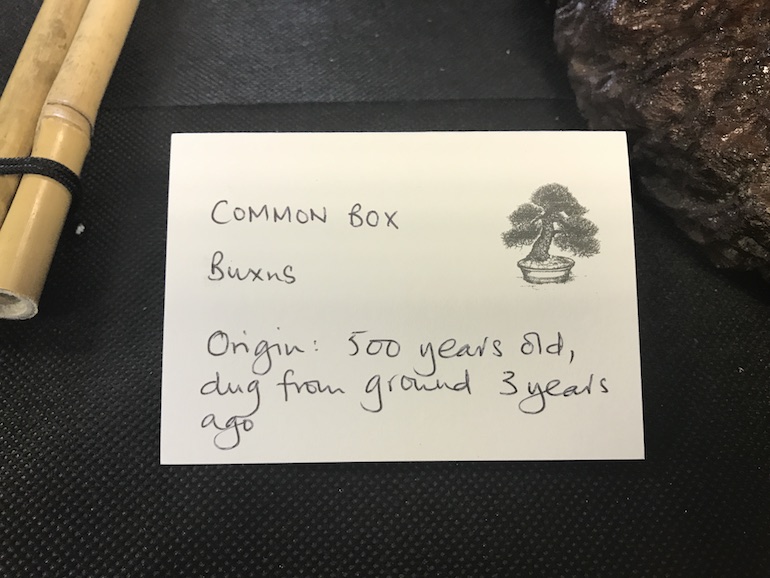 COMMON BOX
Buxus
Origin: 500 years old,
dug from ground 3 years
ago